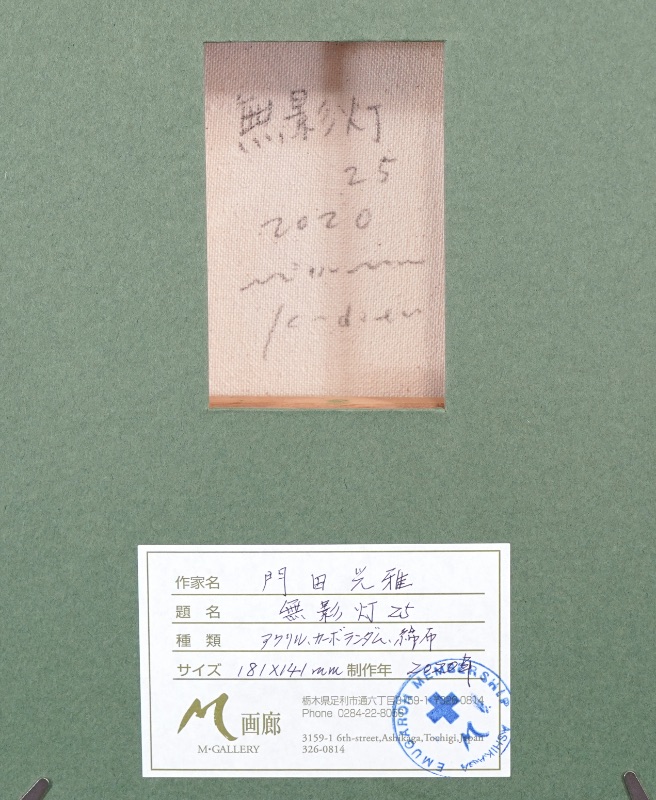 無影灯
25
2020
作家名 門田光雅
題名 無影灯 25
種類 アクリル、カーボランダム、綿布
サイズ 181×141mm 制作年 2020年
M 画廊
M•GALLERY
栃木県足利市通六丁目3159-1 〒326-0814
Phone 0284-22-8055
3159-1 6th-street,Ashikaga,Tochigi,Japan
326-0814
EMUGAROH MEMBERSHIP ASHIKAGA